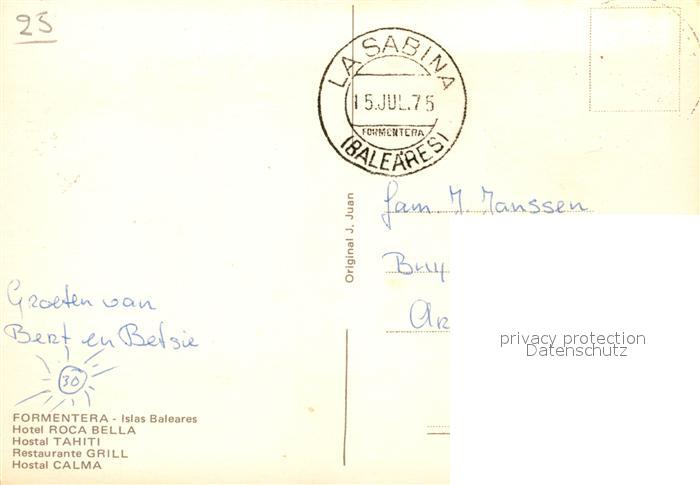 23
LA SABINA
15.JUL.75
FORMENTERA
(BALEARES)
Original J. Juan
Fam J. Janssen
Bruy
Ar
Groeten van
Bert en Betsie
30
FORMENTERA - Islas Baleares
Hotel ROCA BELLA
Hostal TAHITI
Restaurante GRILL
Hostal CALMA
privacy protection
Datenschutz